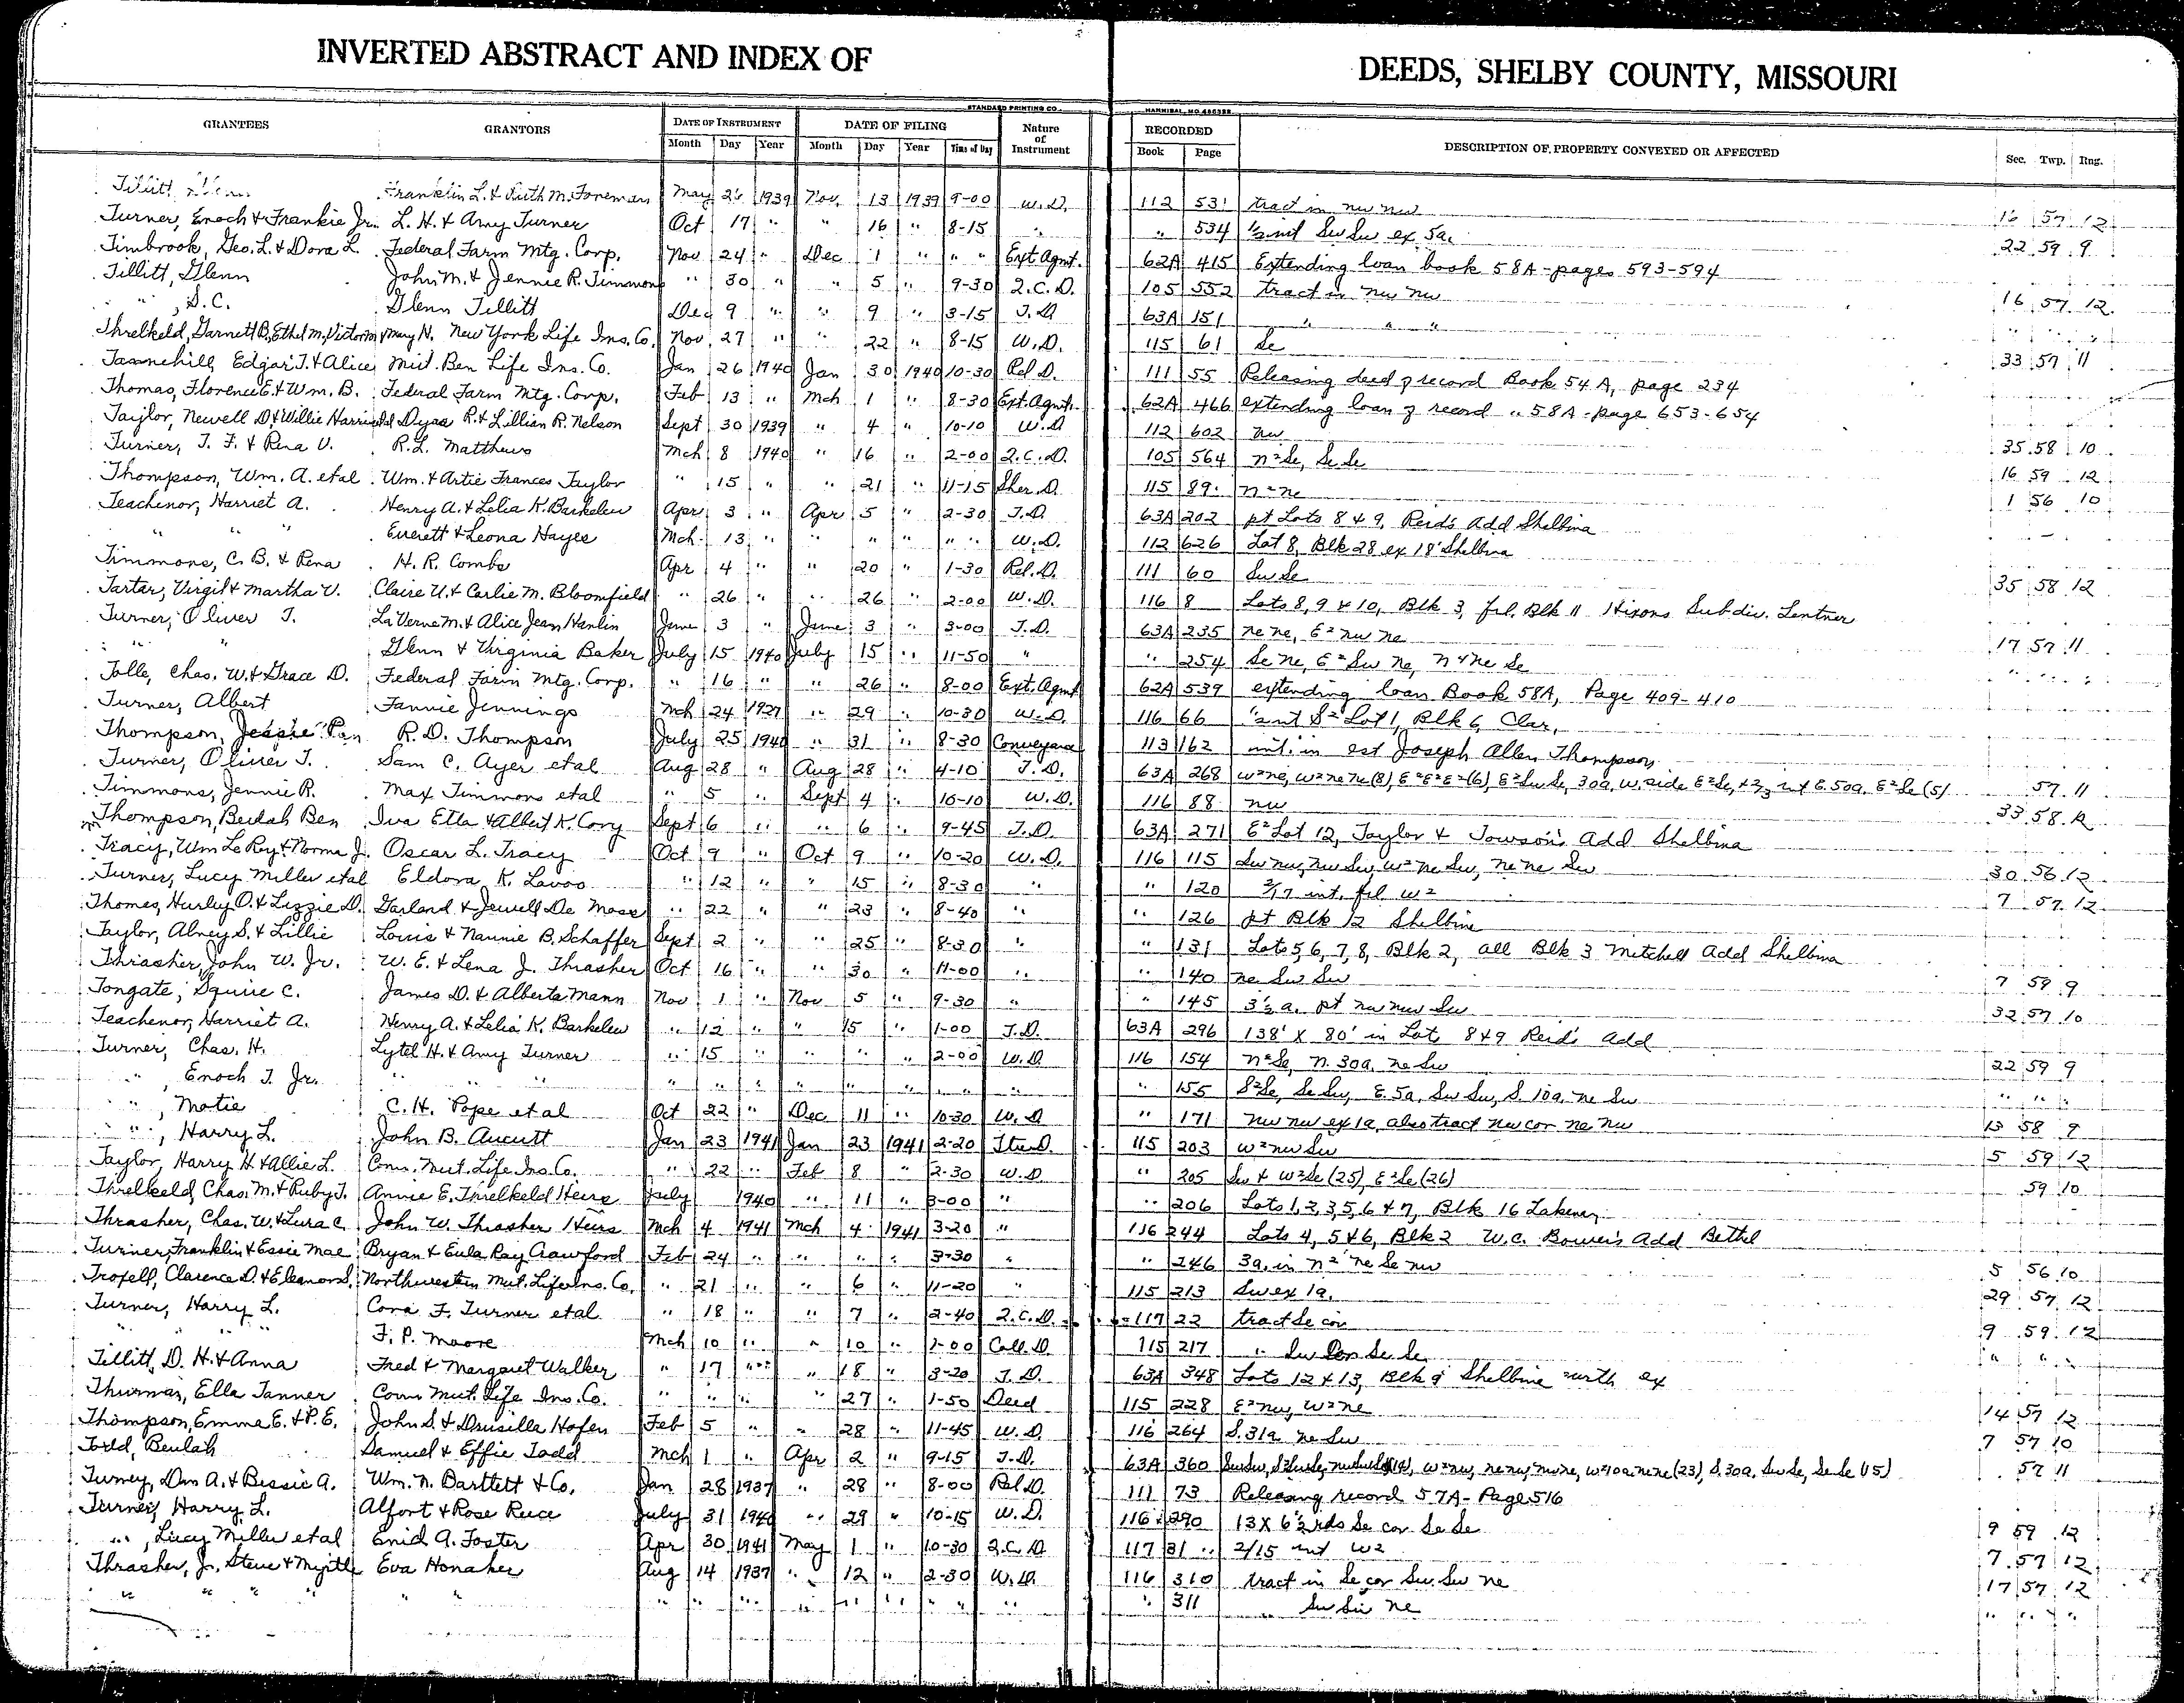 INVERTED ABSTRACT AND INDEX OF DEEDS, SHELBY COUNTY, MISSOURI
STANDARD PRINTING CO. HANNIBAL, MO.
GRANTEES GRANTORS DATE OF INSTRUMENT DATE OF FILING Nature of Instrument RECORDED DESCRIPTION OF PROPERTY CONVEYED OR AFFECTED Sec. Twp. Rng.
Month Day Year Month Day Year Time of Day Book Page
Tillitt, Franklin L. & Ruth M. Foreman May 1939 Nov. 13 1939 9-00 W.D. 112 531 tract in nw nw 16 57 12
Turner, Enoch & Frankie Jr. L. H. & Amy Turner Oct 17 " " 16 " 8-15 " " 534 ½ int Sw Sw ex 5a. 22 59 9
Timbrook, Geo. L. & Dora L. Federal Farm Mtg. Corp. Nov 24 " Dec 1 " " " Ext Agmt. 62A 415 Extending loan book 58A - pages 593-594
Tillitt, Glenn John M. & Jennie R. Timmons " 30 " " 5 " 9-30 Q.C.D. 105 552 tract in nw nw 16 57 12
" , D.C. Glenn Tillitt Dec 9 " " 9 " 3-15 T.D. 63A 151 " " " " " "
Threlkeld, Garnett B, Ethel M, Victor M & Mary N. New York Life Ins. Co. Nov 27 " " 22 " 8-15 W.D. 115 61 Se 33 57 11
Tannehill, Edgar T. & Alice Mut. Ben Life Ins. Co. Jan 26 1940 Jan 30 1940 10-30 Rel D. 111 55 Releasing deed of record Book 54 A, page 234
Thomas, Florence E. & Wm. B. Federal Farm Mtg. Corp. Feb 13 " Mch 1 " 8-30 Ext. Agmt. 62A 466 extending loan of record " 58A - page 653-654
Taylor, Newell D. & Willie Harriet R. & Lillian R. Nelson Sept 30 1939 " 4 " 10-10 W.D. 112 602 nw 35 58 10
Turner, T. F. & Rena V. R.L. Matthews Mch 8 1940 " 16 " 2-00 Q.C.D. 105 564 n²Se, Se Se 16 59 12
Thompson, Wm. A. etal Wm. & Artie Frances Taylor " 15 " " 21 " 11-15 Sher. D. 115 89 n²ne 1 56 10
Teachenor, Harriet A. Henry A. & Lelia K. Barkelew Apr 3 " Apr 5 " 2-30 T.D. 63A 202 pt Lots 8 & 9, Reid's Add Shelbina
" " " Everett & Leona Hayes Mch. 13 " " " " " " W.D. 112 626 Lot 8, Blk 28 ex 18' Shelbina
Timmons, C. B. & Rena H. R. Combs Apr 4 " " 20 " 1-30 Rel. D. 111 60 Sw Se 35 58 12
Tartar, Virgil & Martha V. Claire U. & Carlie M. Bloomfield " 26 " " 26 " 2-00 W.D. 116 8 Lots 8, 9 & 10, Blk 3, frl. Blk 11 Hixons Subdiv. Lentner
Turner, Oliver T. La Verne M. & Alice Jean Hanlin June 3 " June 3 " 3-00 T.D. 63A 235 ne ne, E² nw ne 17 57 11
" " Glenn & Virginia Baker July 15 1940 July 15 " 11-50 " " 254 Se ne, E² Sw ne, n² ne Se " " "
Tolle, Chas. W. & Grace D. Federal Farm Mtg. Corp. " 16 " " 26 " 8-00 Ext. Agmt 62A 539 extending loan Book 58A, Page 409-410
Turner, Albert Fannie Jennings Mch 24 1927 " 29 " 10-30 W.D. 116 66 ½ int S² Lot 1, Blk 6, Clar.
Thompson, Jessie R. D. Thompson July 25 1940 " 31 " 8-30 Conveyance 113 162 int. in est Joseph Allen Thompson
Turner, Oliver T. Sam C. Ayer etal Aug 28 " Aug 28 " 4-10 T.D. 63A 268 w²ne, w²ne ne (8), E²E²E²(6), E²Sw Se, 30a. w. side E²Se, E. 50a. E²Se (5) 57 11
Timmons, Jennie R. Max Timmons etal " 5 " Sept 4 " 10-10 W.D. 116 88 nw 33 58 12
Thompson, Beulah Ben Iva Etta & Albert K. Cory Sept 6 " " 6 " 9-45 T.D. 63A 271 E² Lot 12, Taylor & Towson's Add Shelbina
Tracy, Wm LeRoy & Norma J. Oscar L. Tracy Oct 9 " Oct 9 " 10-20 W.D. 116 115 Sw nw, nw Sw, w² ne Sw, ne ne Sw 30 56 12
Turner, Lucy Miller etal Eldora K. Lavoo " 12 " " 15 " 8-30 " " 120 2/17 int. frl w² 7 57 12
Thomas, Hurley O. & Lizzie D. Garland & Jewell De Moss " 22 " " 23 " 8-40 " " 126 pt Blk 12 Shelbina
Taylor, Abney S. & Lillie Louis & Nannie B. Schaffer Sept 2 " " 25 " 8-30 " " 131 Lots 5, 6, 7, 8, Blk 2, all Blk 3 Mitchell Add Shelbina
Thrasher, John W. Jr. W. E. & Lena J. Thrasher Oct 16 " " 30 " 11-00 " " 140 ne Sw Sw 7 59 9
Tongate, Squire C. James D. & Alberta Mann Nov 1 " Nov 5 " 9-30 " " 145 3½ a. pt nw nw Sw 32 57 10
Teachenor, Harriet A. Henry A. & Lelia K. Barkelew " 12 " " 15 " 1-00 T.D. 63A 296 138' X 80' in Lots 8 & 9 Reid's Add
Turner, Chas. H. Lytel H. & Amy Turner " 15 " " " " 2-00 W.D. 116 154 n²Se, n. 30a. ne Sw 22 59 9
" , Enoch T. Jr. " " " " " " " " " " " 155 S²Se, Se Sw, E. 5a. Sw Sw, S. 10a. ne Sw " " "
" , Motie C. H. Pope et al Oct 22 " Dec 11 " 10-30 W.D. " 171 nw nw ex 1a, also tract nw cor ne nw 13 58 9
" , Harry L. John B. Aucutt Jan 23 1941 Jan 23 1941 2-20 115 203 w² nw Sw 5 59 12
Taylor, Harry H. & Allie L. Conn. Mut. Life Ins. Co. " 22 " Feb 8 " 2-30 W.D. " 205 Sw & w²Se (25), E²Se (26) 59 10
Threlkeld, Chas. M. & Ruby T. Annie E. Threlkeld Heirs July 1940 " 11 " 3-00 " " 206 Lots 1, 2, 3, 5, 6 & 7, Blk 16 Lakenan
Thrasher, Chas. W. & Lura C. John W. Thrasher Heirs Mch 4 1941 Mch 4 1941 3-20 " 116 244 Lots 4, 5 & 6, Blk 2 W.C. Bower's Add Bethel
Turner, Franklin & Essie Mae Bryan & Eula Ray Crawford Feb 24 " " " " 3-30 " " 246 3a. in n² ne Se nw 5 56 10
Troxell, Clarence D. & Eleanor S. Northwestern Mut. Life Ins. Co. " 21 " " 6 " 11-20 " 115 213 Sw ex 1a. 29 57 12
Turner, Harry L. Cora F. Turner etal " 18 " " 7 " 2-40 Q.C.D. 117 22 tract Se cor 9 59 12
" " " F. P. Moore Mch 10 " " 10 " 1-00 Coll. D. 115 217 " Sw cor Se Se " " "
Tillitt, D. H. & Anna Fred & Margaret Walker " 17 " " 18 " 3-20 T.D. 63A 348 Lots 12 & 13, Blk 9 Shelbina north ex
Thurman, Ella Tanner Conn Mut. Life Ins. Co. " " " " 27 " 1-50 Deed 115 228 E² nw, w² ne 14 57 12
Thompson, Emma E. & P. E. John S. & Drusilla Hofen Feb 5 " " 28 " 11-45 W.D. 116 264 S. 31a ne Sw 7 57 10
Todd, Beulah Samuel & Effie Todd Mch 1 " Apr 2 " 9-15 T.D. 63A 360 w²nw, ne nw, nw ne, w²10a ne ne (23), S. 30a. Sw Se, Se Se (15) 57 11
Turney, A. & Bessie A. Wm. N. Bartlett & Co. Jan 28 1937 " 28 " 8-00 Rel D. 111 73 Releasing record 57A - Page 516
Turner, Harry L. Alfort & Rose Ruce July 31 1940 " 29 " 10-15 W.D. 116 290 13 X 6½ rds Se cor Se Se 9 59 12
" , Lucy Miller et al Enid A. Foster Apr 30 1941 May 1 " 10-30 Q.C.D. 117 31 2/15 int w² 7 57 12
Thrasher, Jr. Steve & Myrtle Eva Honaker Aug 14 1937 " 12 " 2-30 W.D. 116 310 tract in Se cor Sw Sw ne 17 57 12
" " " " " " " " " " " " " " 311 " Sw Sw ne " " "